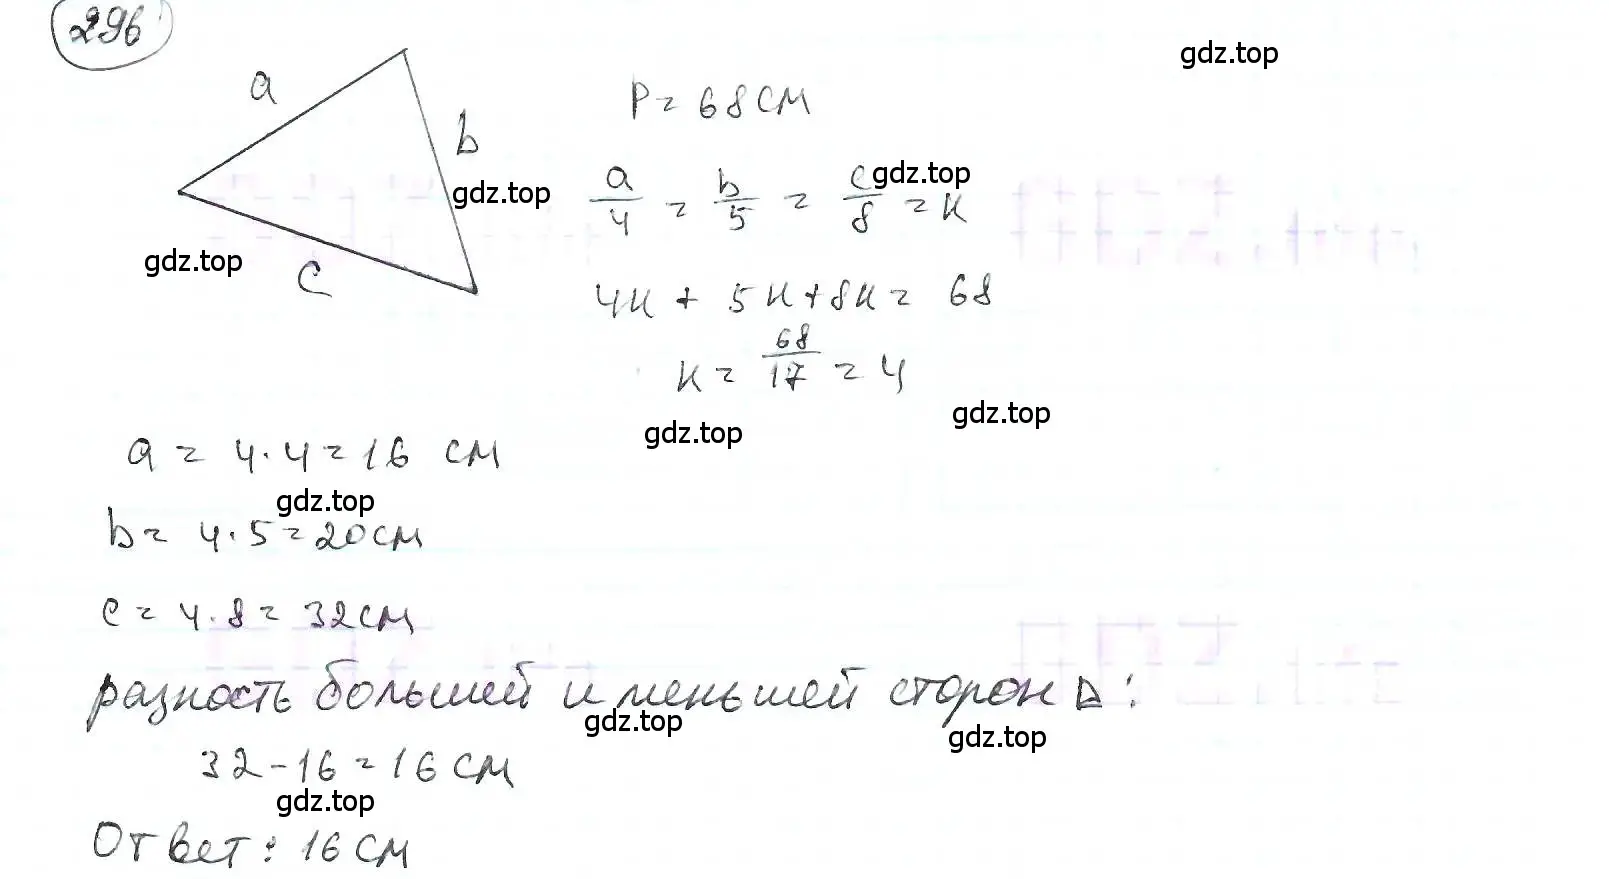 296
gdz.top
a
P = 68 см
b
gdz.top
a/4 = b/5 = c/8 = к
gdz.top
gdz.top
c
4к + 5к + 8к = 68
к = 68/17 = 4
gdz.top
gdz.top
a = 4·4 = 16 см
gdz.top
b = 4·5 = 20 см
c = 4·8 = 32 см
разность большей и меньшей сторон Δ:
gdz.top
gdz.top
32 - 16 = 16 см
gdz.top
Ответ: 16 см